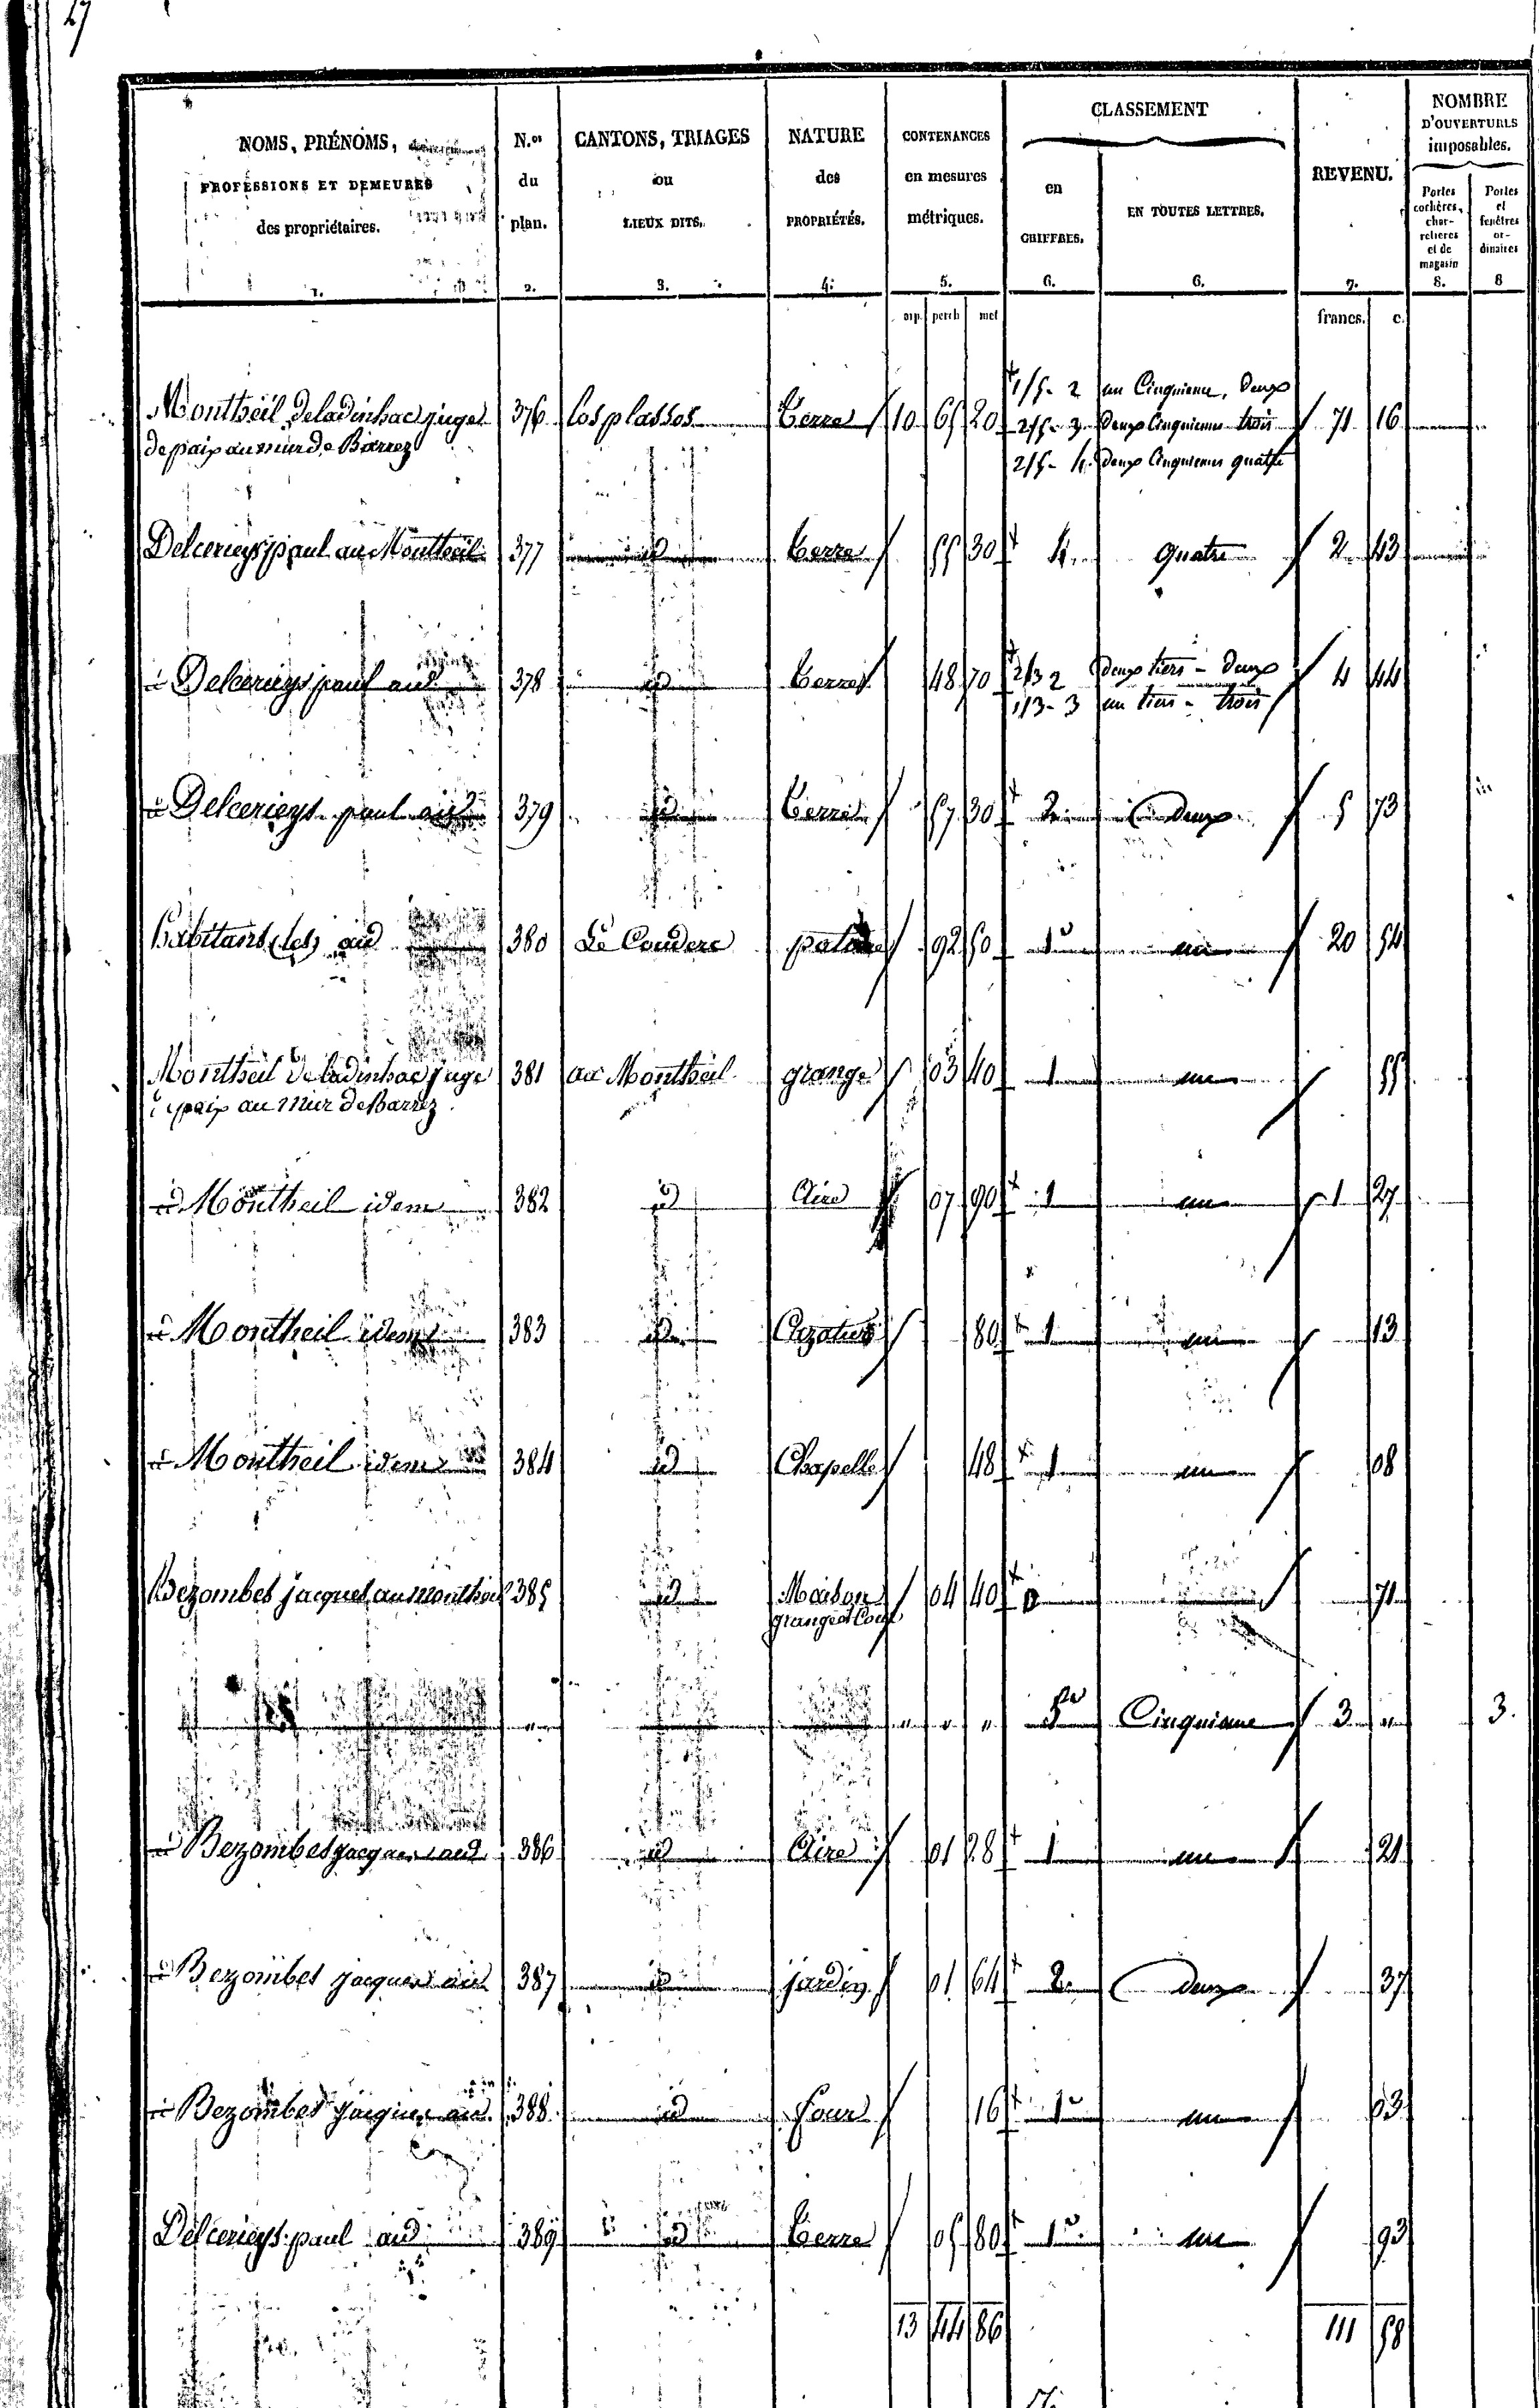 27
NOMS, PRÉNOMS,
PROFESSIONS ET DEMEURES
des propriétaires.
1.
N.os
du
plan.
2.
CANTONS, TRIAGES
ou
LIEUX DITS.
3.
NATURE
des
PROPRIÉTÉS.
4.
CONTENANCES
en mesures
métriques.
5.
CLASSEMENT
en
CHIFFRES.
6.
EN TOUTES LETTRES.
6.
REVENU.
7.
NOMBRE
D'OUVERTURES
imposables.
Portes cochères, charretières et de magasin
8.
Portes et fenêtres ordinaires
8
arp. perch met francs. c.
Montheil de ladinhac juge 376 los plassos Terre 10 65 20 1/5 - 2 un Cinquieme, Deux 71 16
de paix au mur de Barrez 2/5 - 3 Deux Cinquiemes trois
2/5 - 4 Deux Cinquiemes quatre
Delcerieys paul au Montheil 377 id Terre 55 30 4 quatre 2 43
id Delcerieys paul aud 378 id Terre 48 70 2/3 2 Deux tiers - Deux 4 44
1/3 - 3 un tiers - trois
id Delcerieys paul aud 379 id Terre 57 30 2 deux 5 73
habitans (les) aud 380 Le Couderc patural 92 50 1 un 20 54
Montheil de ladinhac juge 381 au Montheil grange 03 40 1 un 55
de paix au Mur de Barrez
id Montheil idem 382 id Aire 07 90 1 un 1 27
id Montheil idem 383 id 80 1 un 13
id Montheil idem 384 id Chapelle 48 1 un 08
Bezombes jacques au montheil 385 id Maison 04 40 71
grange et Cour
5e Cinquieme 3 3.
id Bezombes jacques aud 386 id Aire 01 28 1 un 21
id Bezombes jacques aud 387 id jardin 01 64 2 deux 37
id Bezombes jacques aud 388 id four 16 1 un 03
Delcerieys paul aud 389 id Terre 05 80 1 un 93
13 44 86 111 58